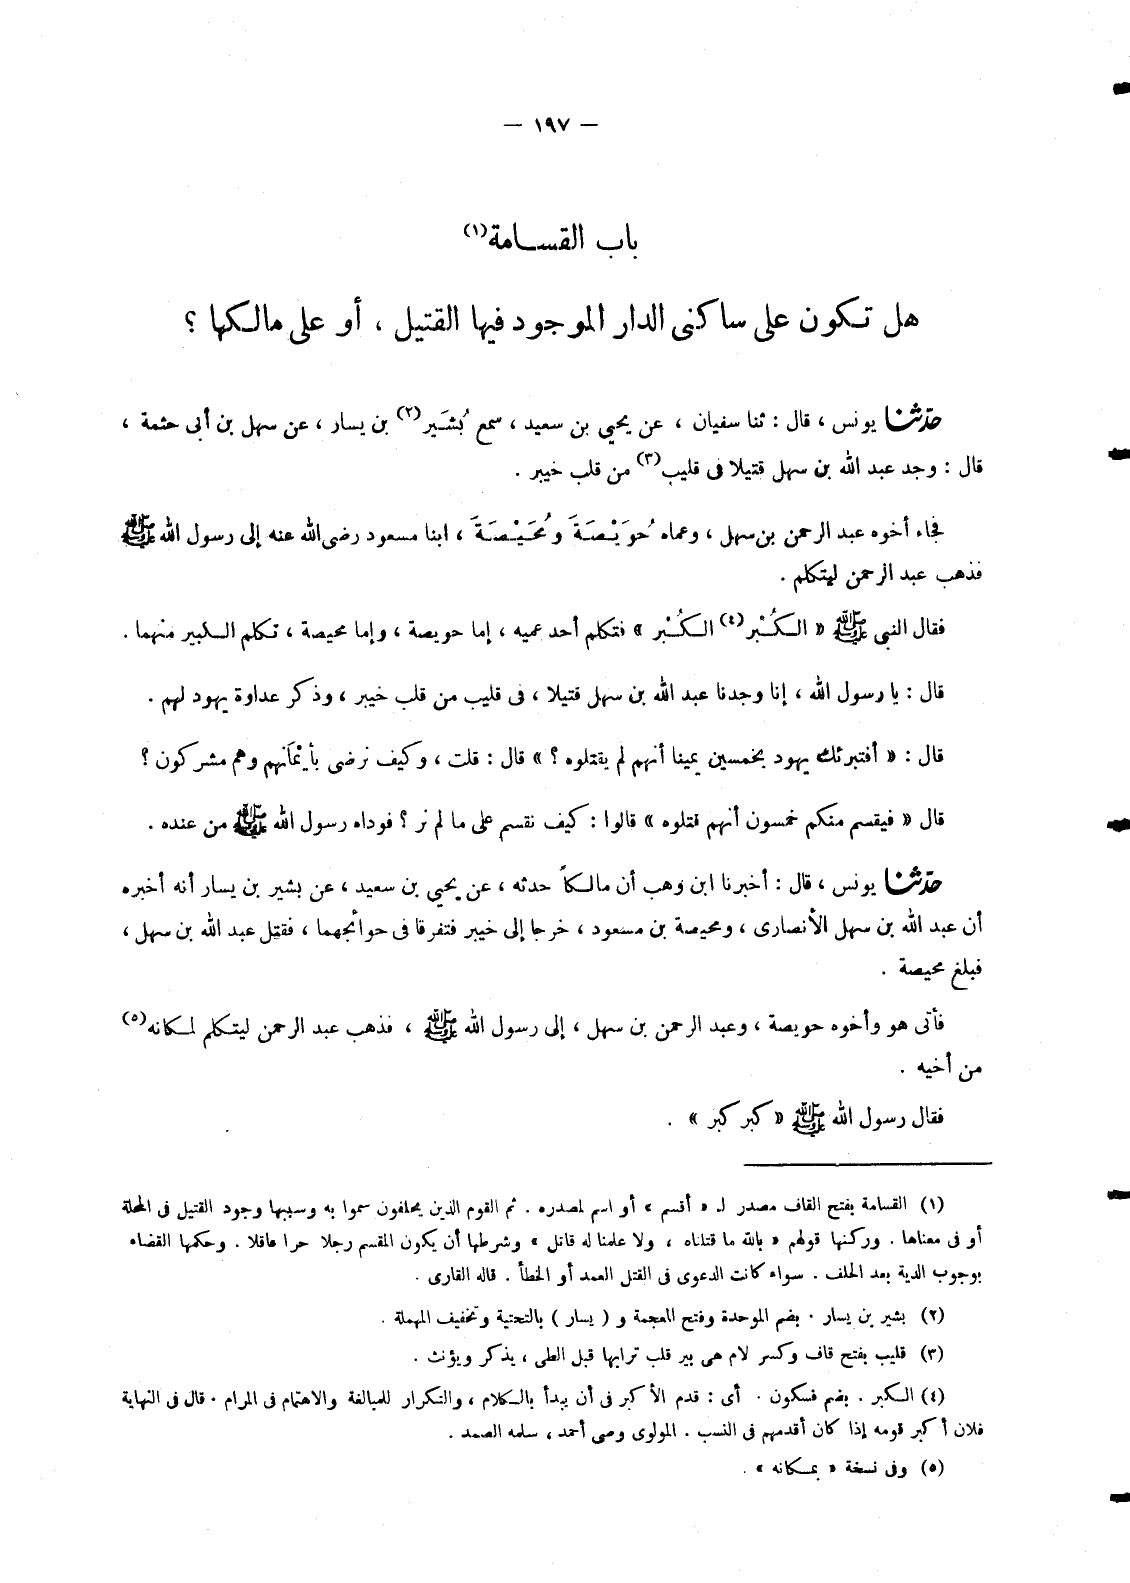 — ١٩٧ —
باب القســامة(١)
هل تـكون على ساكنى الدار الموجود فيها القتيل ، أو على مالـكها ؟
حدّثنا يونس ، قال : ثنا سفيان ، عن يحيى بن سعيد ، سمع بُشَـير(٢) بن يسار ، عن سهل بن أبى حثمة ،
قال : وجد عبد الله بن سهل قتيلا فى قليب(٣) من قلب خيبر .
فجاء أخوه عبد الرحمن بن سهل ، وعماه حُوَيْـصَـةَ ومُحَيْـصَـةَ ، ابنا مسعود رضى الله عنه إلى رسول الله ﷺ
فذهب عبد الرحمن ليتكلم .
فقال النبى ﷺ « الـكُـبْر(٤) الـكُـبْر » فتكلم أحد عميه ، إما حويصة ، وإما محيصة ، تـكلم الـكبير منهما .
قال : يا رسول الله ، إنا وجدنا عبد الله بن سهل قتيلا ، فى قليب من قلب خيبر ، وذكر عداوة يهود لهم .
قال : « أفتبرئك يهود بخمسين يمينا أنهم لم يقتلوه ؟ » قال : قلت ، وكيف نرضى بأيْمَانهم وهم مشركون ؟
قال « فيقسم منكم خمسون أنهم قتلوه » قالوا : كيف نقسم على ما لم نر ؟ فوداه رسول الله ﷺ من عنده .
حدّثنا يونس ، قال : أخبرنا ابن وهب أن مالـكاً حدثه ، عن يحيى بن سعيد ، عن بشير بن يسار أنه أخبره
أن عبد الله بن سهل الأنصارى ، ومحيصة بن مسعود ، خرجا إلى خيبر فتفرقا فى حوائجهما ، فقتل عبد الله بن سهل ،
فبلغ محيصة .
فأتى هو وأخوه حويصة ، وعبد الرحمن بن سهل ، إلى رسول الله ﷺ ، فذهب عبد الرحمن ليتـكلم لمـكانه(٥)
من أخيه .
فقال رسول الله ﷺ « كبر كبر » .
(١) القسامة بفتح القاف مصدر لـ « أقسم » أو اسم لمصدره . ثم القوم الذين يحلفون سموا به وسببها وجود القتيل فى المحلة
أو فى معناها . وركنها قولهم « بالله ما قتلناه ، ولا علمنا له قاتل » وشرطها أن يكون المقسم رجلا حرا عاقلا . وحكمها القضاء
بوجوب الدية بعد الحلف . سواء كانت الدعوى فى القتل العمد أو الخطأ . قاله القارى .
(٢) بشير بن يسار . بضم الموحدة وفتح المعجمة و ( يسار ) بالتحتية وتخفيف المهملة .
(٣) قليب بفتح قاف وكسر لام هى بير قلب ترابها قبل الطى ، يذكر ويؤنث .
(٤) الـكبر . بضم فسكون . أى : قدم الأكبر فى أن يبدأ بالـكلام ، والتكرار للمبالغة والاهتمام فى المرام . قال فى النهاية
فلان أكبر قومه إذا كان أقدمهم فى النسب . المولوى وصى أحمد ، سلمه الصمد .
(٥) وفى نسخة « بمـكانه » .